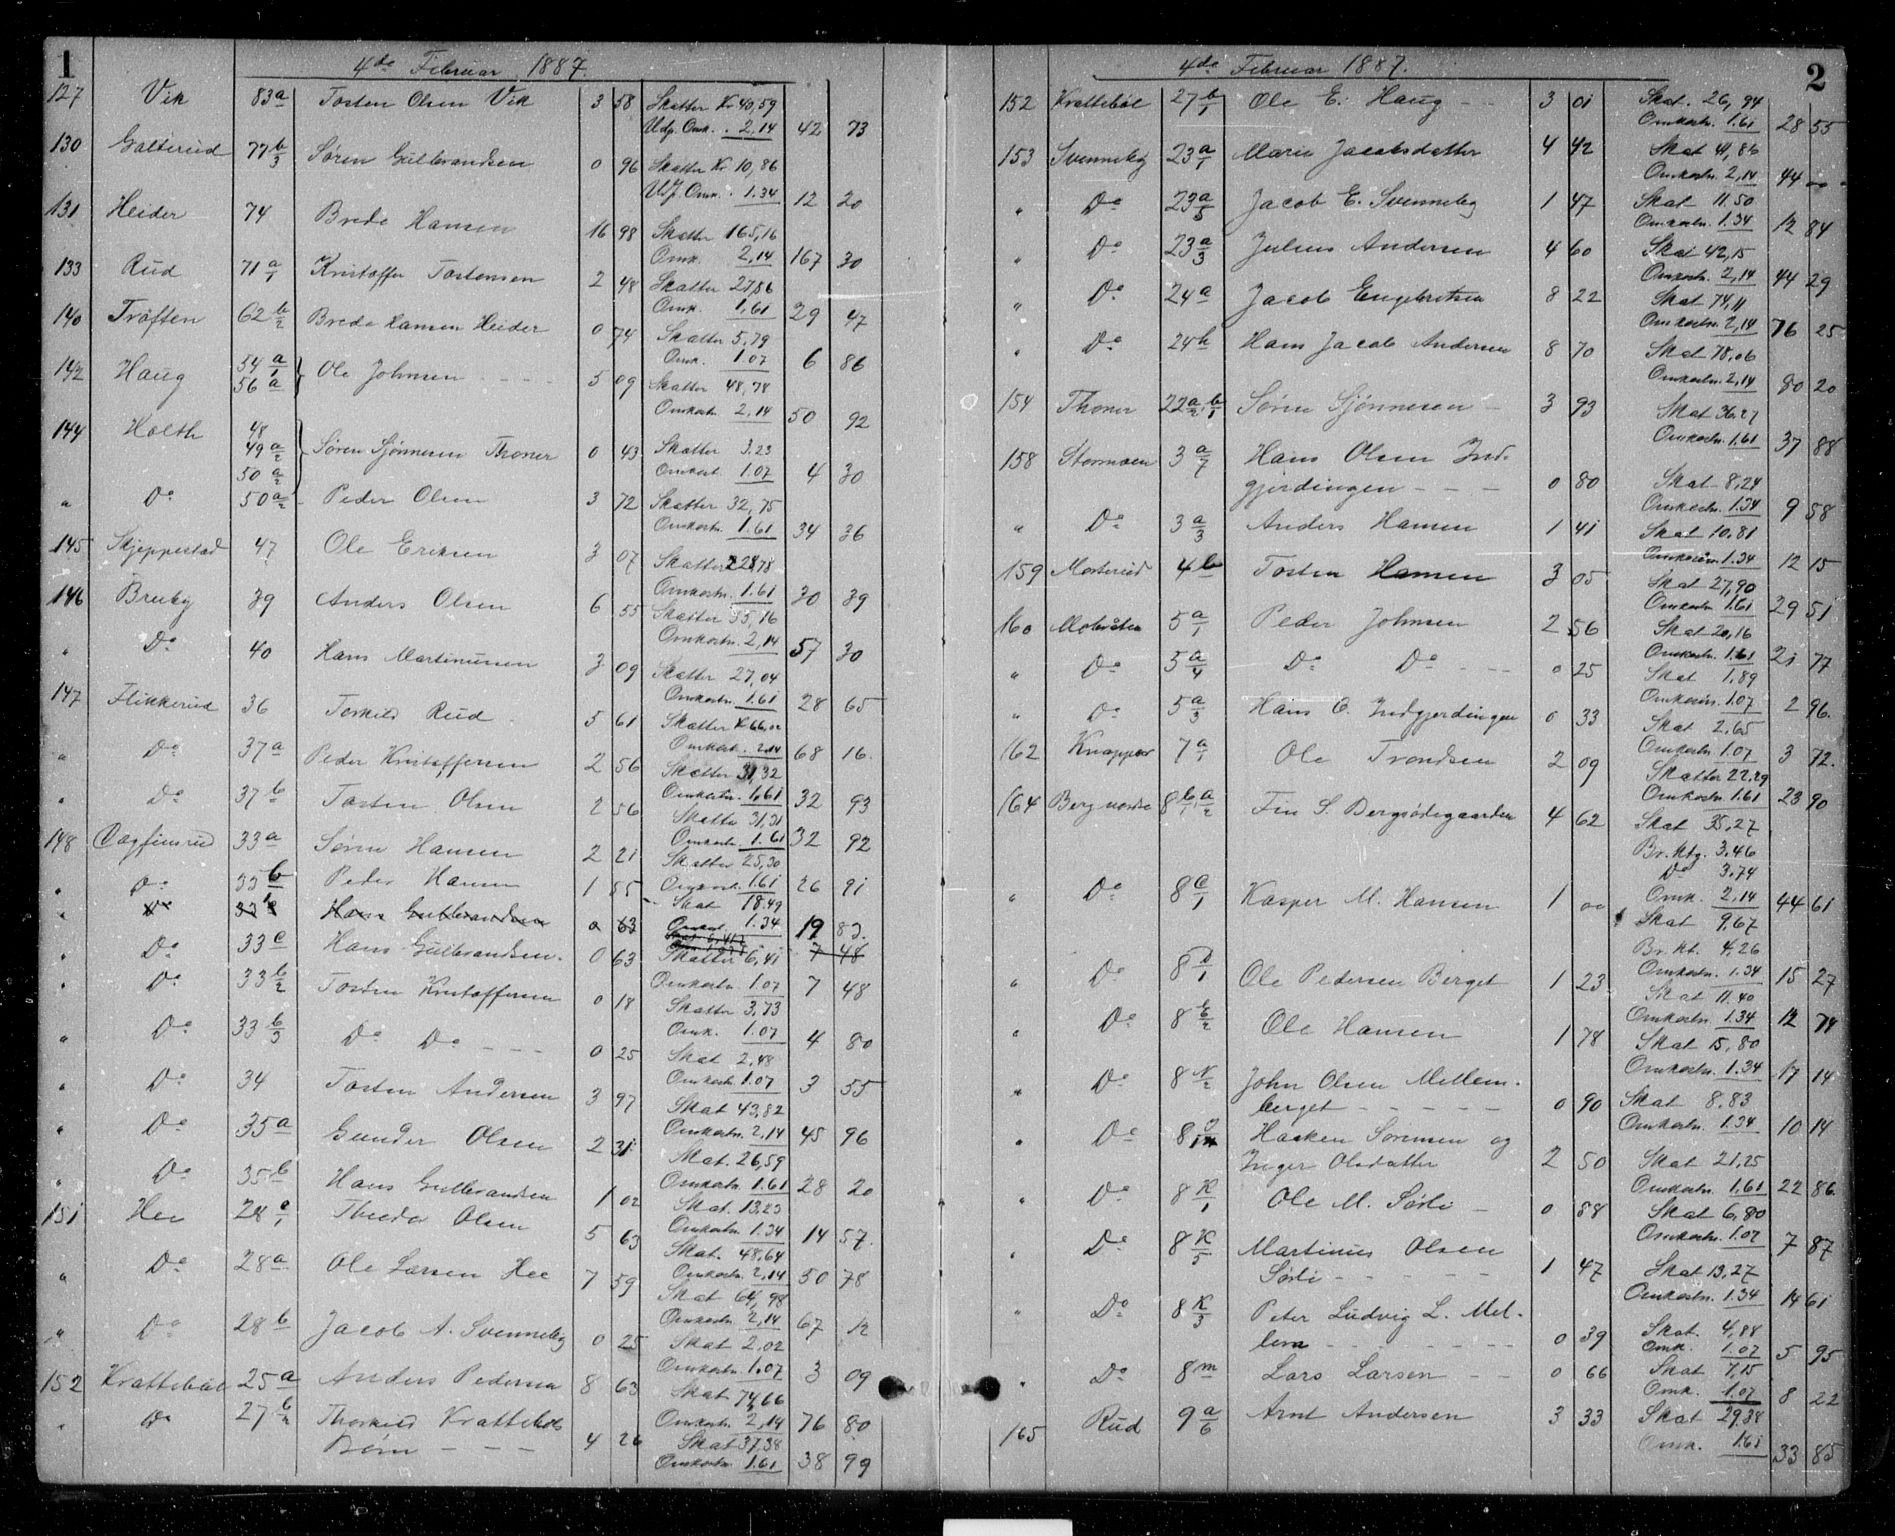 1
4de Februar 1887.
127 Vik 83a Tosten Olsen Vik 3 58 Skatter Kr 40,59
Udp. Omk. . 2,14 42 73
130 Galterud 77 b/3 Søren Gulbrandsen 0 96 Skatter Kr 10,86
Udf. Omk. . 1.34 12 20
131 Heider 74 Brede Hansen 16 98 Skatter 165,16
Omk. 2,14 167 30
133 Rud 71 a/1 Kristoffer Tostensen 2 48 Skatter 27,86
Omk. 1,61 29 47
140 Trøften 62 b/2 Brede Hansen Heider 0 74 Skatter 5,79
Omk. 1.07 6 86
142 Haug 54 a/1 56 a Ole Johnsen 5 09 Skatter 48,78
Omkost. 2,14 50 92
144 Holth 48
49 a/2 Søren Sjønnesen Throner 0 43 Skatter 3.23
50 a/2 Omkost. 1.07 4 30
" Do 50 a/2 Peder Olsen 3 72 Skatter 32,75
Omkostn. 1.61 34 36
145 Skjeppestad 47 Ole Eriksen 3 07 Skatter 28,78
Omkostn. 1.61 30 39
146 Bruby 39 Anders Olsen 6 55 Skatter 55,16
Omkostn. 2,14 57 30
" Do 40 Hans Martinusen 3 09 Skatter 27,04
Omkostn. 1.61 28 65
147 Flikkerud 36 Torkild Rud 5 61 Skatter Kr 66,02
Omkost. 2.14 68 16.
" Do 37a Peder Kristoffersen 2 56 Skatter 31,32
Omkostn. 1,61 32 93
" Do 37b Tosten Olsen 2 56 Skatter 31,31
Omkostn. 1.61 32 92
148 Dagfinsrud 33a Søren Hansen 2 21 Skatter 25,30
Omkost. 1.61 26 91
" Do 33b Peder Hansen 1 55 Skat 18.49
Omkost. 1.34 19 83.
" Do 33 Hans Gulbrandsen 0 63 7 48
" Do 33c Hans Gulbrandsen. 0 63 Skatter 6,41
Omkostn. 1.07 7 48
" Do 33 b/2 Tosten Kristoffersen 0 18 Skatter 3,73
Omk. 1.07 4 80
" Do 33 b/3 Do Do 0 25 Skat 2,48
Omkostn. 1.07 3 55
" Do 34 Tosten Andersen 3 97 Skat 43,82
Omkostn. 2,14 45 96
" Do 35a Gunder Olsen 2 31 Skat. 26,59
Omkostn. 1.61 28 20
" Do 35b Hans Gulbrandsen 1 02 Skat. 13,23
Omkostn. 1.34 14 57.
151 Hee 28 c/1 Theodor Olsen 5 63 Skat. 48,64
Omkostn. 2,14 50 78
" Do 28a Ole Larsen Hee 7 59 Skat 64,98
Omkostn. 2,14 67 12
" Do 28b Jacob A. Svenneby 0 25 Skat 2,02
Omkostn. 1.07 3 09
152 Krattebøl 25a Anders Pedersen 8 63 Skat 74,66
Omkostn. 2,14 76 80
" Do 27 b/2 Thorkild Krattebøls
Børn 4 26 Skat 37,38
Omkostn. 1.61 38 99
2
4de Februar 1887.
152 Krattebøl 27 b/1 Ole E. Haug 3 01 Skat. 26,94
Omkostn. 1.61 28 55
153 Svenneby 23 a/1 Marie Jacobsdatter 4 42 Skat 41,86
Omkostn. 2,14 44 00
" Do 23 a/5 Jacob E. Svenneby 1 47 Skat 11.50
Omkostn. 1.34 12 84
" Do 23 a/3 Julius Andersen 4 60 Skat 42,15
Omkostn. 2,14 44 29
" Do 24a Jacob Engebretsen 8 22 Skat 74,11
Omkostn. 2,14 76 25
" Do 24b Hans Jacob Andersen 8 70 Skat 78,06
Omkostn. 2,14 80 20
154 Thoner 22 a/2, b/1 Søren Sjønnesen 3 93 Skat 36.27
Omkostn. 1.61 37 88
158 Stormoen 3 a/7 Hans Olsen Ind-
gjerdingen 0 80 Skat 8,24
Omkostn. 1.34 9 58
" Do 3 a/3 Anders Hansen 1 41 Skat 10,81
Omkostn. 1.34 12 15
159 Morterud 4b Tosten Hansen 3 05 Skat 27,90
Omkostn. 1.61 29 51
160 5 a/1 Peder Johnsen 2 56 Skat 20,16
Omkostn. 1.61 21 77
" Do 5 a/4 Do Do 0 25 Skat 1,89
Omkostn. 1.07 2 96.
" Do 5 a/3 Hans O. Indgjerdingen 0 33 Skat 2.65
Omkostn. 1.07 3 72.
162 Knapper 7 a/1 Ole Trondsen 2 09 Skatter 22.29
Omkostn. 1.61 23 90
164 Berg nordre 8 b/1, a/2 Fin S. Bergsødegaarden 4 62 Skat 35,27
Br. ktg. 3.46
Do 3.74
Omk. 2,14 44 61
" Do 8 c/1 Kasper M. Hansen 1 00 Skat 9,67
Br. kt. 4,26
Omkostn. 1.34 15 27
" Do 8 d/1 Ole Pedersen Berget 1 23 Skat 11.40
Omkostn. 1.34 12 74
" Do 8 Ole Hansen 1 78 Skat 15,80
Omkostn. 1.34 17 14
" Do 8 John Olsen Mellem-
berget 0 90 Skat 8.83
Omkostn. 1.34 10 14
" Do 8 Haaken Sørensen og
Inger Olsdatter 2 50 Skat 21,25
Omkostn. 1,61 22 86.
" Do 8 K/1 Ole M. Sørli 0 88 Skat 6,80
Omkostn. 1.07 7 87
" Do 8 K/5 Martinus Olsen
Sørli 1 47 Skat 13,27
Omkostn. 1.34 14 61
" Do 8 K/3 Peter Ludvig L. Mel-
lem 0 39 Skat. 4,88
Omk. 1.07 5 95
" Do 8m Lars Larsen 0 66 Skat 7,15
Omk. 1.07 8 22
165 Rud 9 a/6 Arnt Andersen 3 33 Skat 29,38
Omk. 1.61 33 85